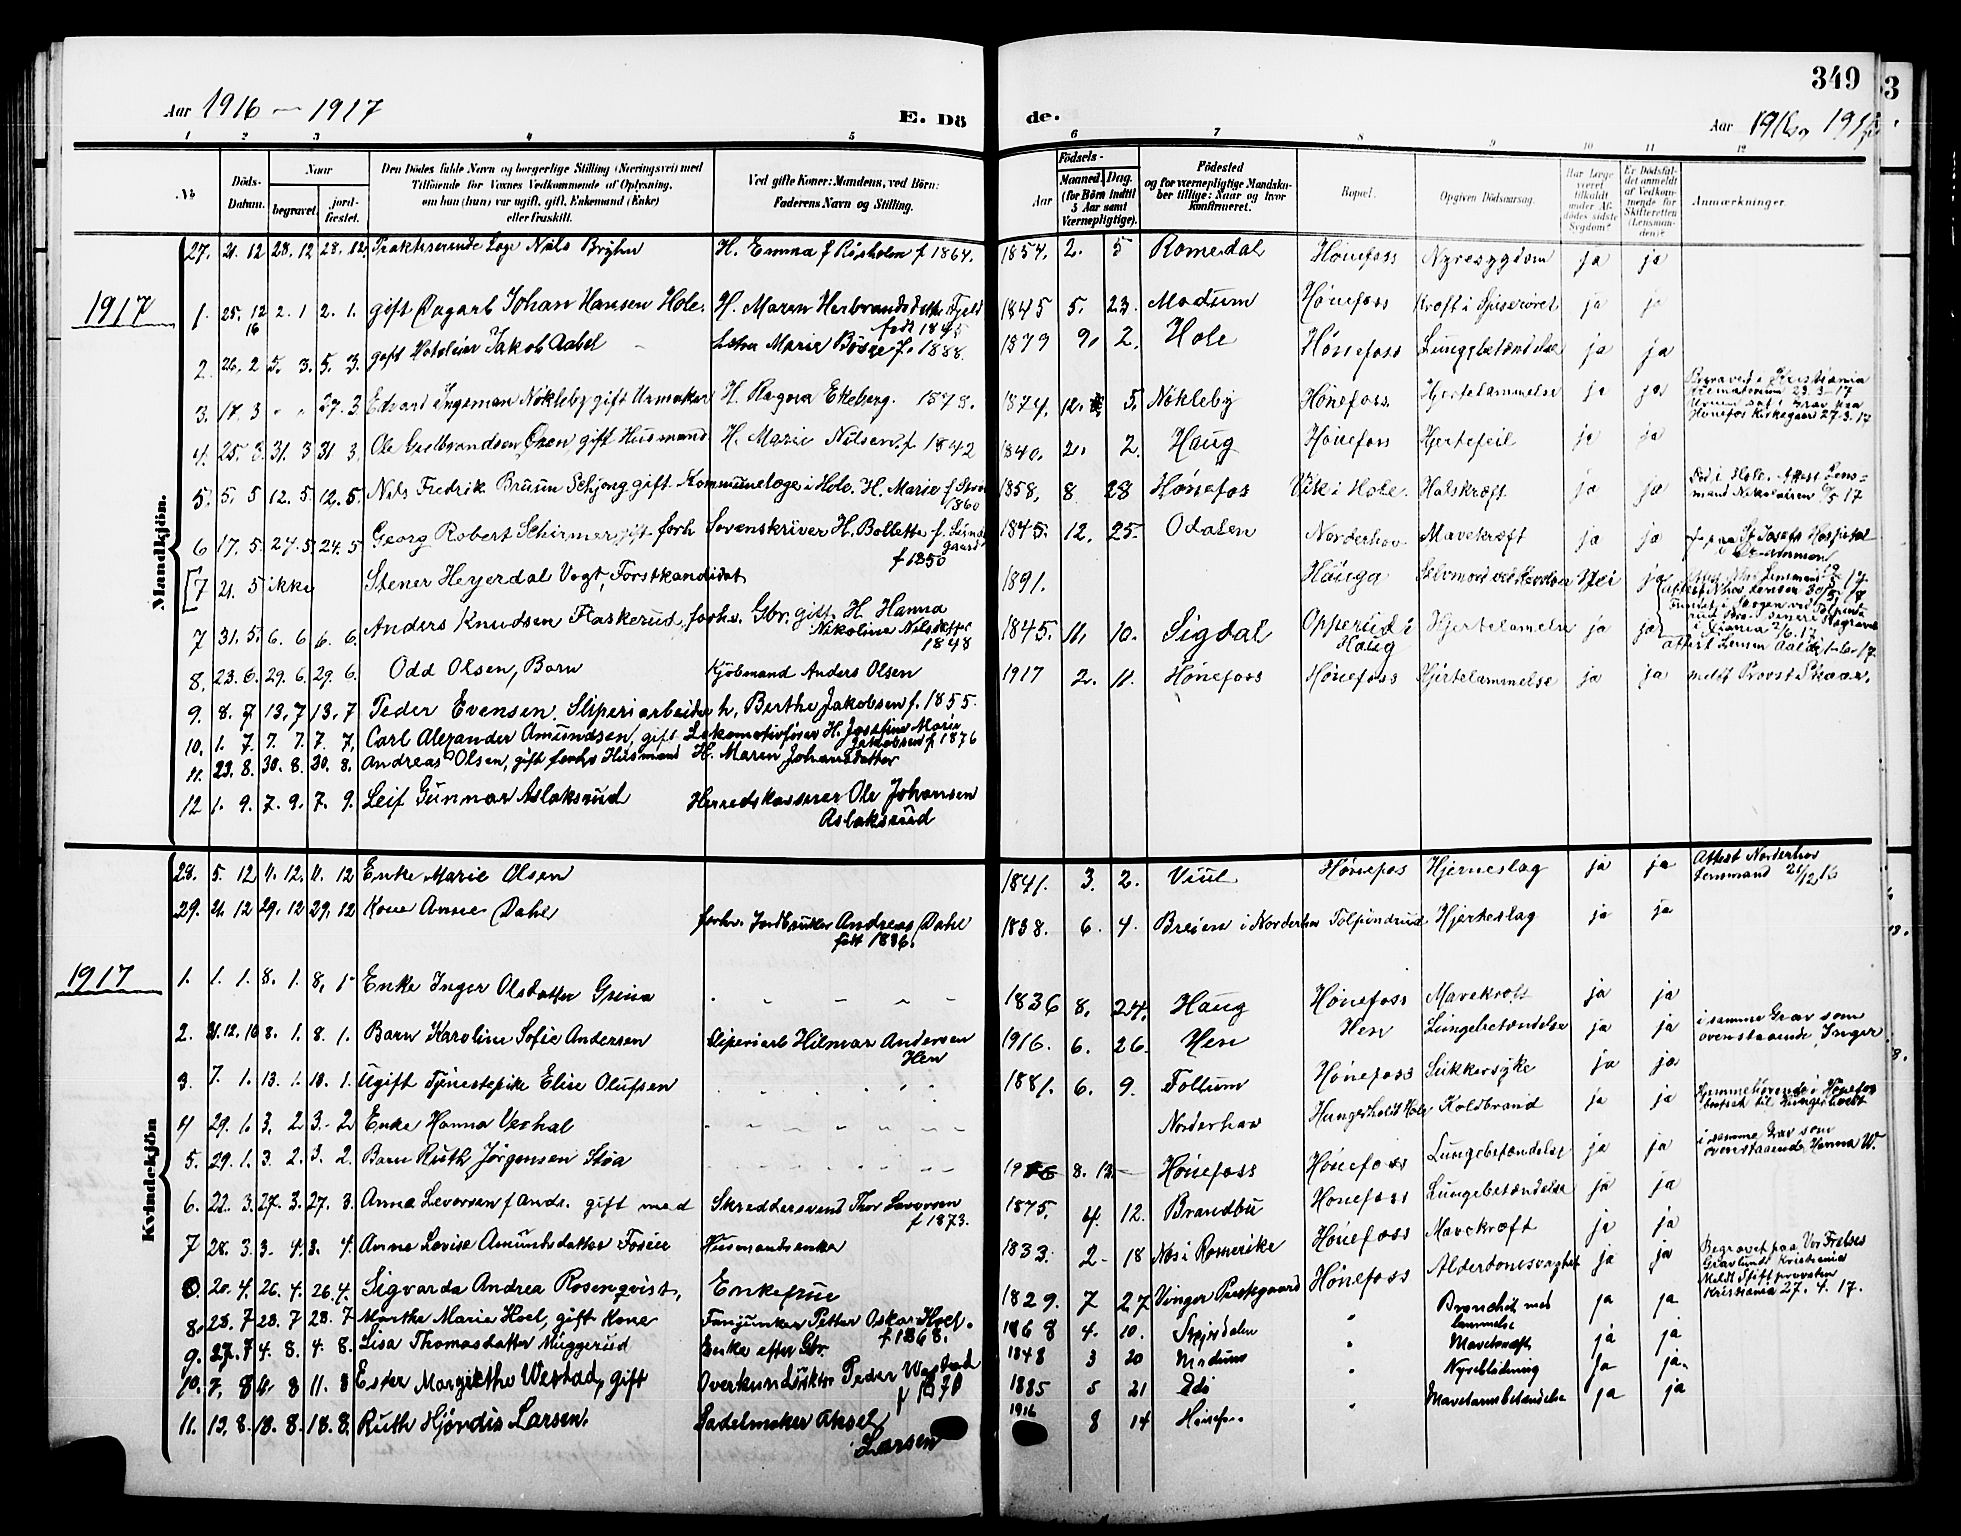 349
Aar 1916 — 1917
E. Dö
de.
Aar 1916 1917
1 2 3 4 5 6 7 8 9 10 11 12
№
Döds-Datum.
Naar
begravet.
jord-fæstet.
Den Dödes fulde Navn og borgerlige Stilling (Næringsvei) med
Tilföiende for Voxnes Vedkommende af Oplysning,
om han (hun) var ugift, gift, Enkemand (Enke)
eller fraskilt.
Ved gifte Koner: Mandens, ved Börn:
Faderens Navn og Stilling.
Födsels-
Aar
Maaned. Dag.
(for Börn indtil
5 Aar samt
Værnepligtige).
Födested
og for værnepligtige Mandskaber tillige: Naar og hvor
konfirmeret.
Bopæl.
Opgiven Dödsaarsag.
Har Læge været tilkaldt under Afdödes sidste Sygdom?
Er Dödsfaldet anmeldt af Vedkommende for Skifteretten (Lensmanden)?
Anmærkninger.
Mandkjön.
27. 21. 12 28. 12 28. 12. Praktiserende Læge Nils Bryhn H. Emma f 1864. 1854. 2. 5 Romedal Hönefoss Nyresygdom ja ja
1917
1. 25. 12 16 2. 1 2. 1. gift Johan Hansen Hole. H. Maren Herbrandsdatter Fjeld født 1845 1845 5. 23. Modum Hönefoss Kræft i Spiserøret ja ja
2. 26. 2 5. 3. 5. 3. gift Jakob Aabel Marie f. 1888. 1879 9. 2. Hole Hönefoss Lungebetændelse ja ja
3. 17. 3 " " 27. 3 Edvard Ingeman Nökleby gift Urmaker H. Ragna Ekeberg. 1878. 1874. 12. 5. Nökleby Hönefoss Hjertelammelse ja ja Begravet i Kristiania Krematorium 23.3-17 Hönefos Kirkegaard 27.3.17
4. 25. 3. 31. 3 31 3. Ole Gulbrandsen Oxen, gift Husmand H. Marie Nilsen, f. 1842 1840. 2. 2. Haug Hönefoss Hjertefeil ja ja
5. 5. 5 12. 5. 12. 5. Nils Fredrik Bruun Schjong gift Kommunelæge i Hole. H. Marie f 1860 1858, 8 28 Hönefos Vik i Hole. Halskræft ja ja Död i Hole. Attest Lensmand 5 17
6 17. 5. 24. 5. 24. 5 Georg Robert Schirmer, gift forh Sorenskriver H. Bollette f. f 1850 1845. 12. 25. Odalen Norderhov Mavekræft ja ja St Josefs Hospital
7 21. 5 ikke Stener Heyerdal Vogt, Forstkandidat 1891. Hauga Nei ja
7 31. 5. 6. 6. 6. 6. Anders Knudsen Flaskerud, forhv. Gbr. gift. H. Hanna Nikoline Nilsdatter 1848 1845. 11. 10. Sigdal Opperud i Haug Hjertelamelse ja ja
8. 23. 6. 29. 6. 29. 6. Odd Olsen, Barn Kjöbmand Anders Olsen 1917 2. 11. Hönefoss Hönefoss Hjertelammelse ja ja meldt Provst Skaar.
9. 8. 7 13. 7 13. 7 Peder Evensen. Sliperiarbeider h, Berthe Jakobsen f. 1855.
10. 1. 7. 7. 7. 7. 7. Carl Alexander Amundsen, gift Lokomotivfører H. Josefine Marie Jakobsen f 1876
11. 23. 8. 30. 8. 30. 8. Andreas Olsen, gift forhv Husmand H. Maren Johansdatter
12 1. 9. 7. 9. 7. 9. Leif Gunnar Aslaksrud Herredskasserer Ole Johansen Aslaksrud
Kvindekjön
28. 5. 12 11. 12. 11. 12 Enke Marie Olsen 1841. 3. 2. Viul Hönefos Hjerneslag ja ja Attest Norderhov Lensmand 21/12 16
29. 21. 12 29. 12 29. 12 Kone Anne Dahl forhv. Jordbruker Andreas Dahl født 1836. 1838. 6. 4. Breien i Norderhov Tolpinrud Hjerteslag ja ja
1917
1. 1. 1. 8. 1. 8. 1 Enke Inger Olsdatter 1836 8. 24. Haug Hönefoss Mavekræft ja ja
2. 31. 12. 16 8. 1. 8. 1. Barn Karoline Sofie Andersen Sliperiarb Hilmar Andersen Hen 1916. 6. 26. Hen Hen Lungebetændelse ja ja i samme Grav som ovenstaaende, Inger
3. 7. 1. 13. 1. 13. 1. Ugift Tjenestepike Elise Olufsen 1881. 6. 9. Follum Hönefoss Sukkersyke ja ja
4 29. 1. 3. 2 3. 2 Enke Hanna Norderhov Koldbrand ja ja
5. 29. 1. 3. 2. 3. 2. Barn Ruth Jörgensen Stöa 8. 13. Hönefoss Hönefoss Lungebetændelse ja ja i samme Grav som ovenstaaende Hanna W.
6. 22. 3. 27. 3. 27. 3. Anna Levorsen f Ands. gift med Skreddersvend Thor Levorsen f 1873. 1875. 4. 12. Brandbu Hönefoss Lungebetændelse ja ja
7 28. 3. 3. 4. 3. 4. Anne Lovise Amundsdatter Fosse Husmandsenke 1833. 2 18 Nes i Romerike Hönefoss Mavekræft ja ja
20. 4. 26. 4. 26. 4. Sigvarda Andrea Rosenqvist, Enkefrue 1829. 7 27 Vinger Præstegaard Hönefoss Alderdomssvaghet ja ja Begravet paa Vor Frelsers Gravlund Kristiania Meldt Stiftsprovsten Kristiania 27. 4. 17.
8. 23. 7 28. 7 28. 7 Marthe Marie Hoel, gift Kone Fanejunker Petter Oskar Hoel. f 1868. 1868 4. 10. Stjördalen " Bronchit med lammelse ja ja
9. 27. 7 4. 8. 4. 8. Lisa Thomasdatter Muggerud Enke efter Gbr. 1848 3 20 Modum " Mavekræft ja ja
10. 7. 8 11. 8 11. 8 Ester Margrethe Westad, gift Peder Westad f 1870 1885 5 21 " Nyreblödning ja ja
11. 13. 8. 18. 8. 18. 8. Ruth Hjördis Larsen. Sadelmaker Aksel Larsen 1916 8 14 " Mavetarmbetændelse ja ja